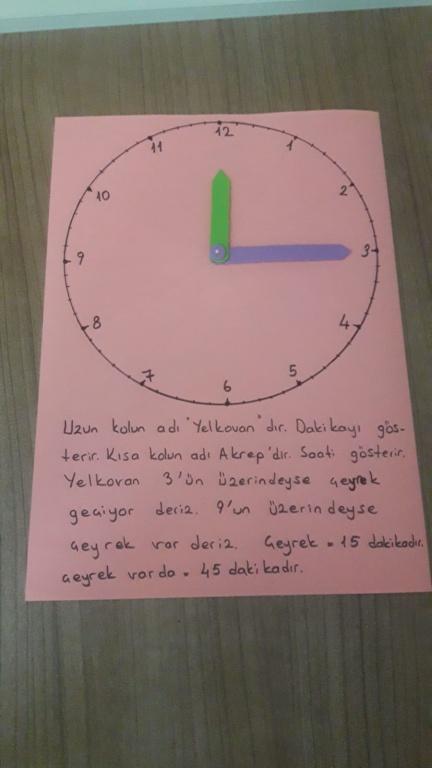 12
11
1
10
2
9
3
8
4
7
5
6
Uzun kolun adı "Yelkovan" dır. Dakikayı gös-
terir. Kısa kolun adı Akrep'dır. Saati gösterir.
Yelkovan 3'ün üzerindeyse çeyrek
geçiyor deriz. 9'un üzerindeyse
çeyrek var deriz. Çeyrek = 15 dakikadır.
çeyrek varda = 45 dakikadır.